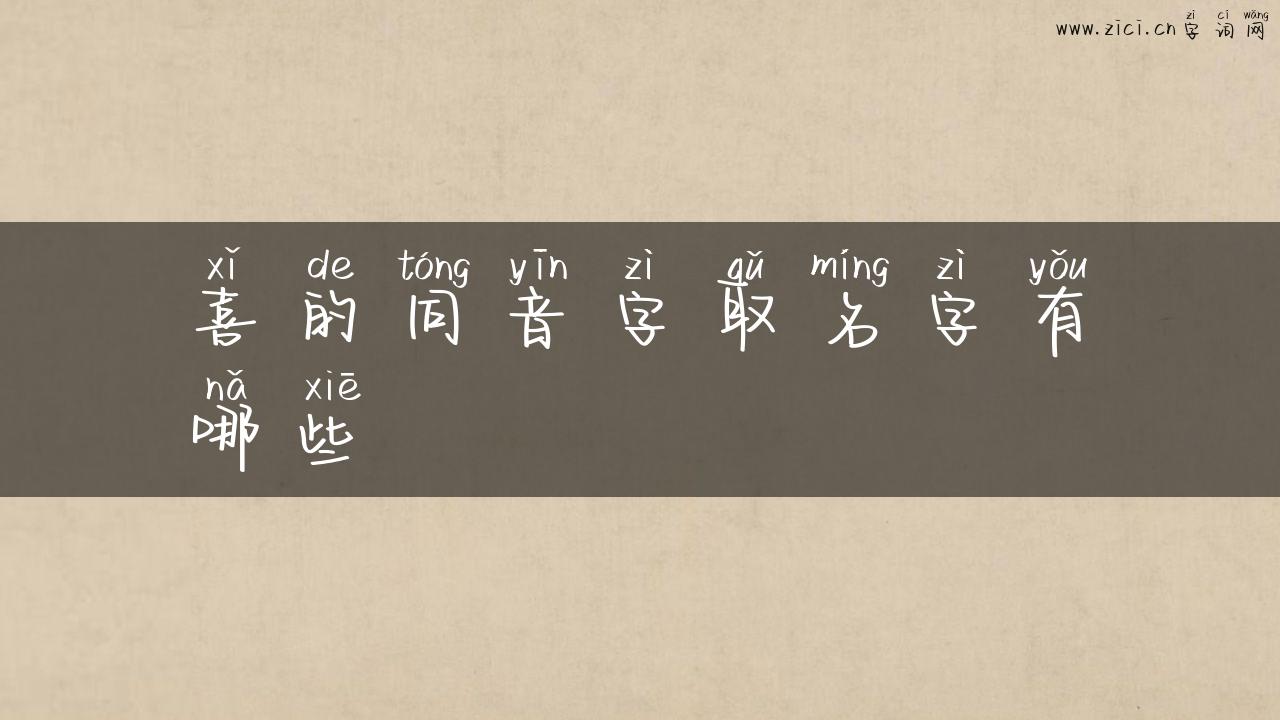 www.zici.cn zì cí wǎng
字词网
xǐ de tóng yīn zì qǔ míng zì yǒu
喜的同音字取名字有
nǎ xiē
哪些